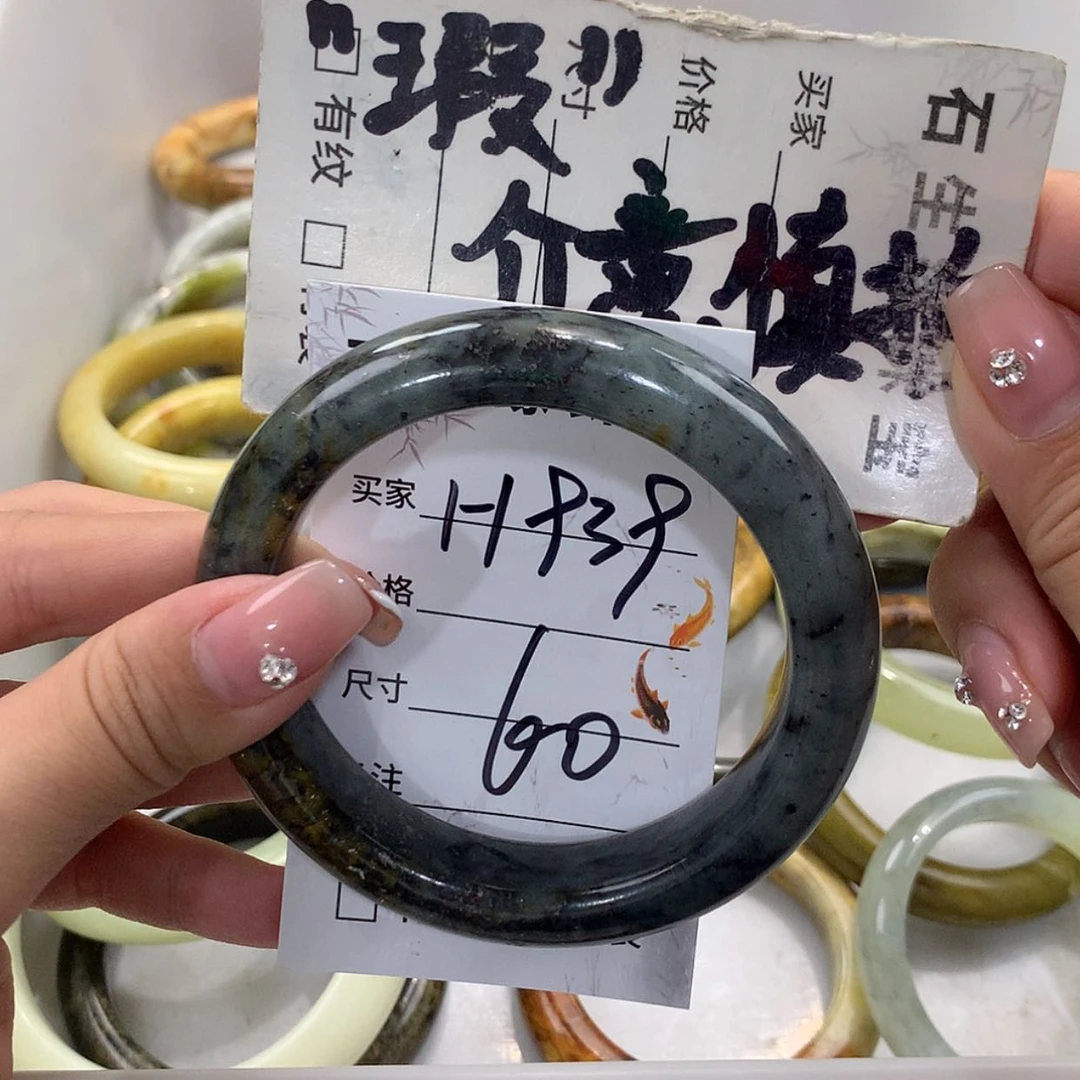 石生
玉
买家
价格
寸
有纹
"瑕"
介意慎
买家 H939
格
尺寸 60
注